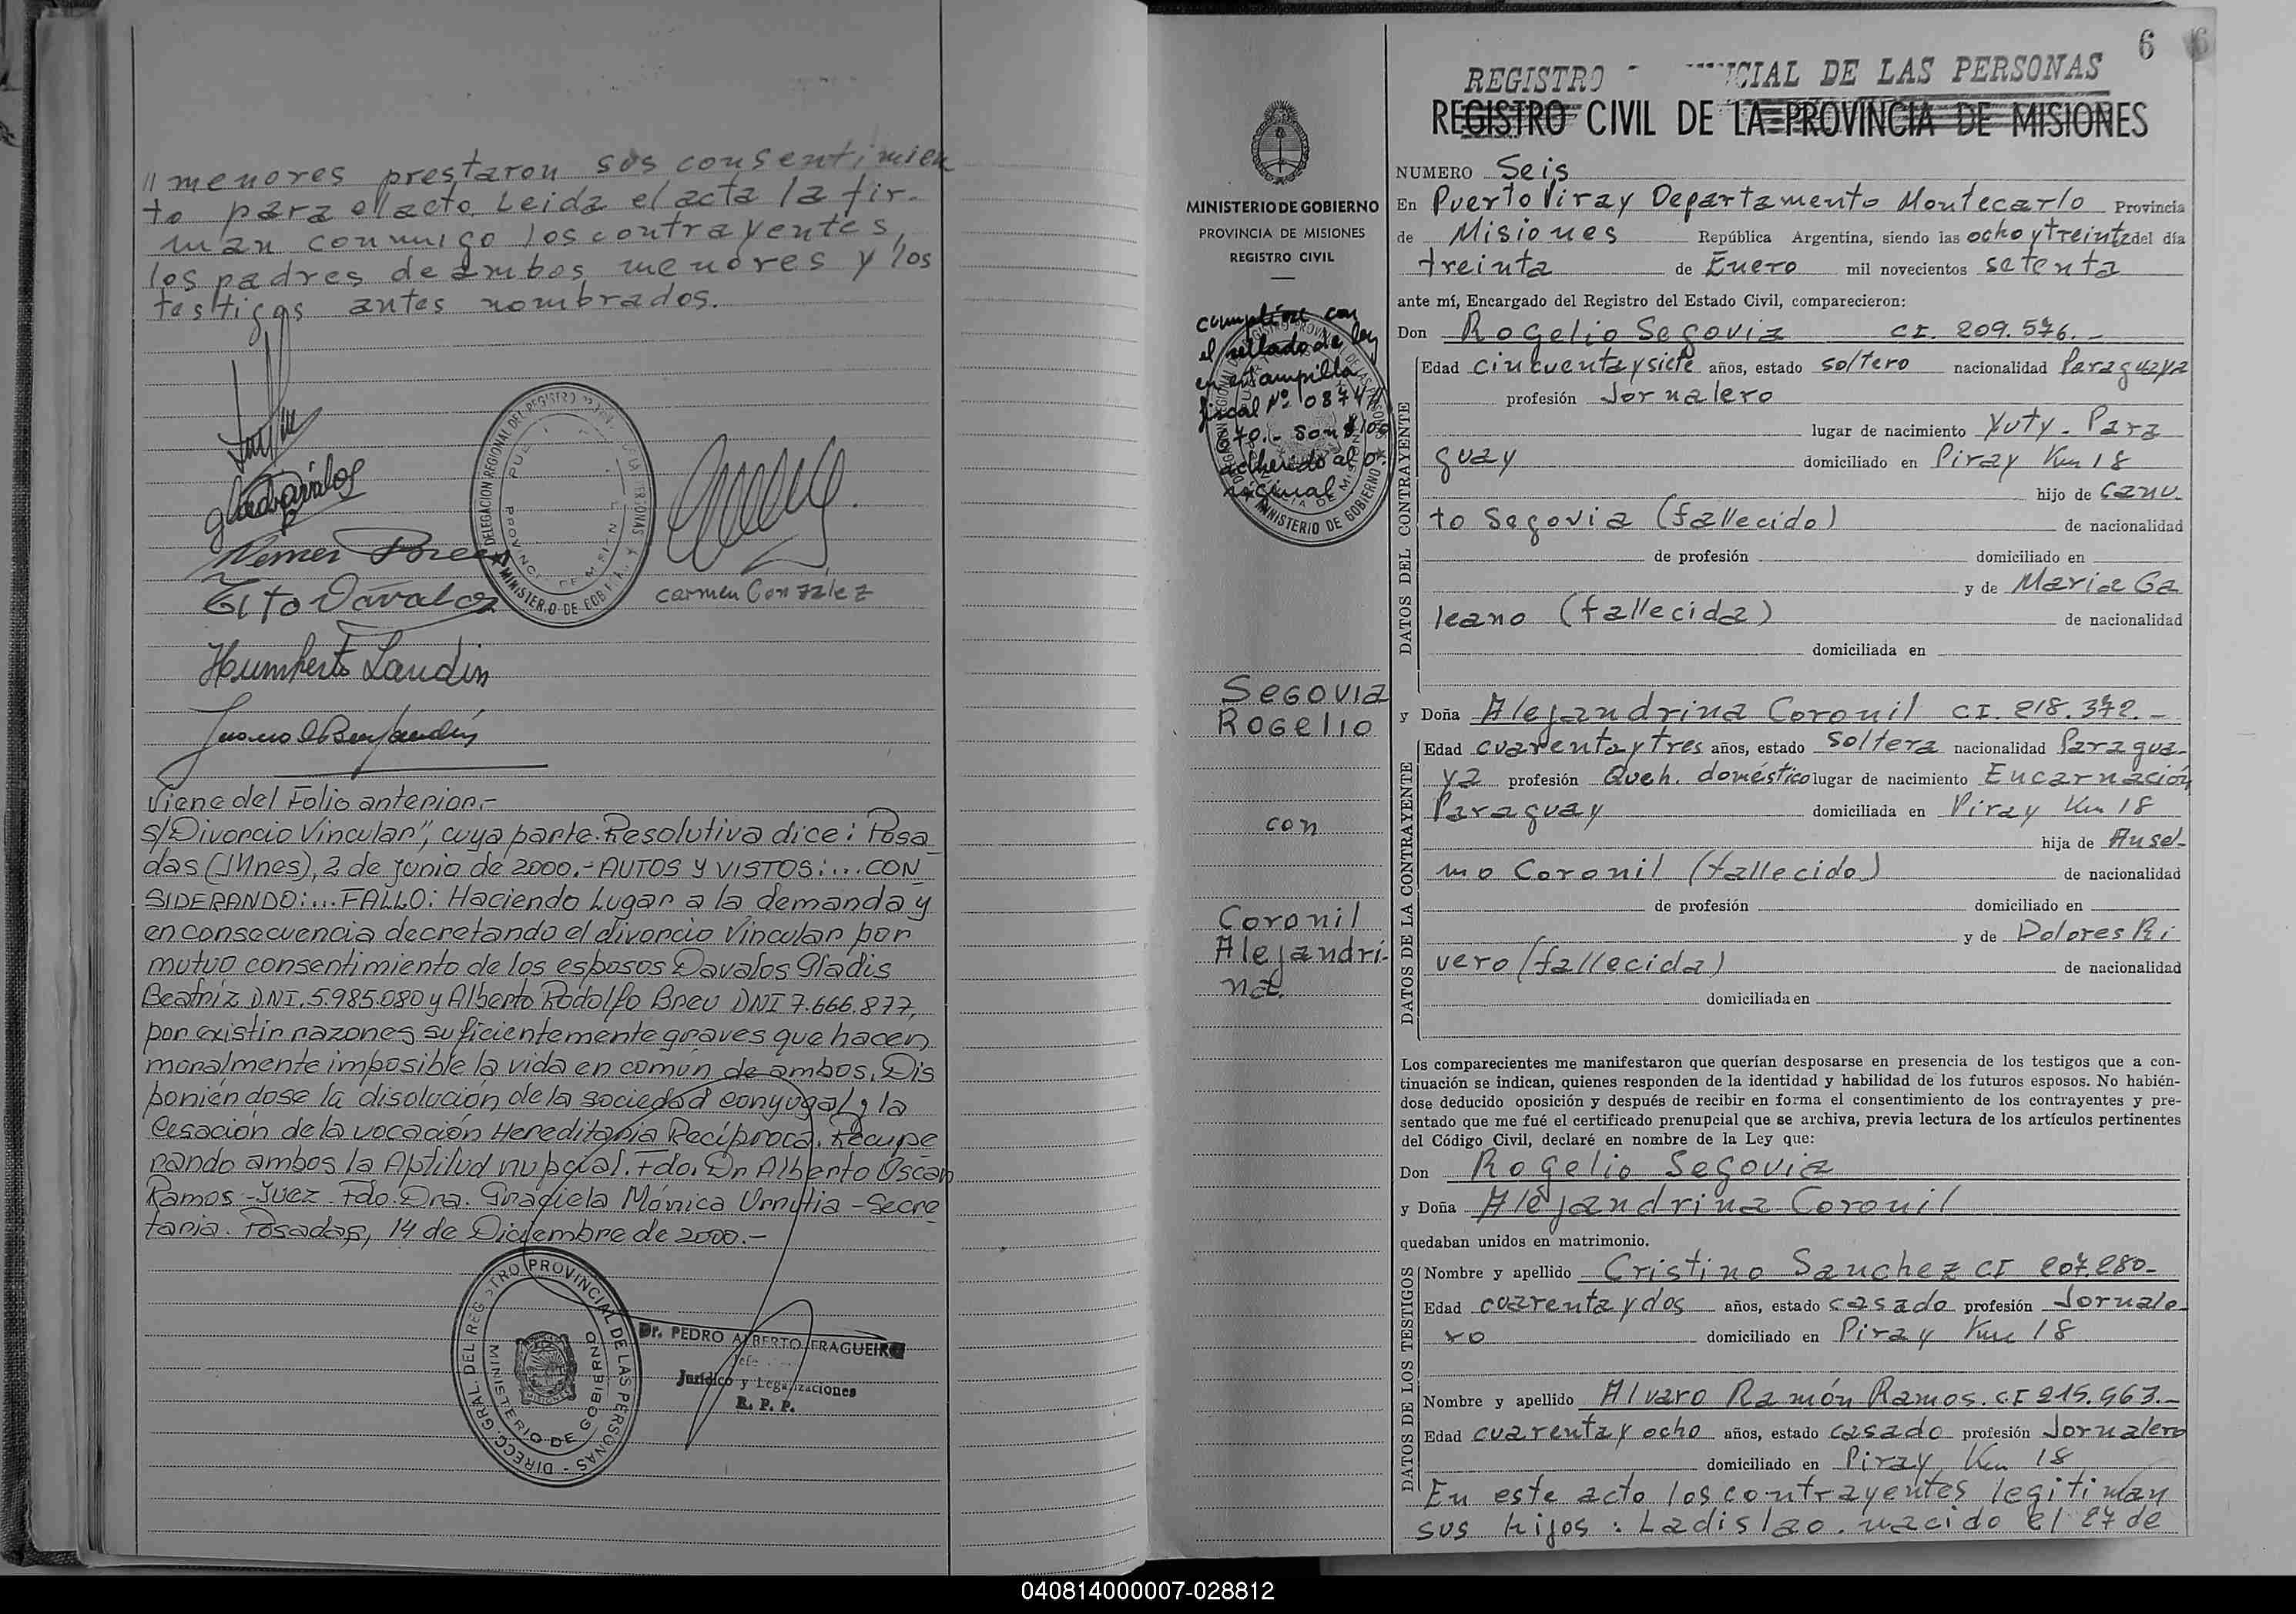 // menores prestaron sus consentimien
to para el acto. Leida el acta la fir-
man conmigo los contrayentes,
los padres de ambos menores y los
testigos antes nombrados.
Tito Davalos
carmen Gonzalez
Humberto Landin
DELEGACION REGIONAL DEL REGISTRO
MINISTERIO DE GOB
Viene del Folio anterior.-
s/Divorcio Vincular", cuya parte Resolutiva dice: Posa
das (Mnes), 2 de Junio de 2000.- AUTOS Y VISTOS:... CON
SIDERANDO:... FALLO: Haciendo Lugar a la demanda y
en consecuencia decretando el divorcio Vincular por
mutuo consentimiento de los esposos Davalos Gladis
Beatriz D.N.I. 5.985.080 y Alberto Rodolfo Breu DNI 7.666.877,
por existir razones suficientemente graves que hacen
moralmente imposible la vida en común de ambos. Dis
poniéndose la disolución de la sociedad conyugal y la
Cesación de la vocación Hereditaria Recíproca. Recupe
rando ambos la Aptitud nupcial. Fdo. Dr Alberto Oscar
Ramos -Juez. Fdo. Dra. Graciela Mónica Urrutia -Secre
taria. Posadas, 14 de Diciembre de 2000.-
DIRECC. GRAL. DEL REGISTRO PROVINCIAL DE LAS PERSONAS -
MINISTERIO DE GOBIERNO
Dr. PEDRO ALBERTO FRAGUEIRO
Jefe
Jurídico y Legalizaciones
R. P. P.
6
REGISTRO CIAL DE LAS PERSONAS
REGISTRO CIVIL DE LA PROVINCIA DE MISIONES
MINISTERIO DE GOBIERNO
PROVINCIA DE MISIONES
REGISTRO CIVIL
el sellado de ley
en estampilla
fiscal Nº 0874
adherido al o
riginal
MINISTERIO DE GOBIERNO
Segovia
Rogelio
con
Coronil
Alejandri-
na.
NUMERO Seis
En Puerto Piray Departamento Montecarlo Provincia
de Misiones República Argentina, siendo las ocho y treinta del día
treinta de Enero mil novecientos setenta
ante mí, Encargado del Registro del Estado Civil, comparecieron:
Don Rogelio Segovia CI. 209.576.-
DATOS DEL CONTRAYENTE
Edad cincuenta y siete años, estado soltero nacionalidad Paraguaya
profesión Jornalero
lugar de nacimiento Yuty - Para
guay domiciliado en Piray Km 18
hijo de Canu
to Segovia (fallecido) de nacionalidad
de profesión domiciliado en
y de Maria Ga
leano (fallecida) de nacionalidad
domiciliada en
y Doña Alejandrina Coronil CI. 218.372.-
DATOS DE LA CONTRAYENTE
Edad cuarenta y tres años, estado soltera nacionalidad Paragua-
ya profesión Queh. doméstico lugar de nacimiento Encarnación
Paraguay domiciliada en Piray Km 18
hija de Ansel-
mo Coronil (fallecido) de nacionalidad
de profesión domiciliado en
y de Dolores Ri
vero (fallecida) de nacionalidad
domiciliada en
Los comparecientes me manifestaron que querían desposarse en presencia de los testigos que a con-
tinuación se indican, quienes responden de la identidad y habilidad de los futuros esposos. No habién-
dose deducido oposición y después de recibir en forma el consentimiento de los contrayentes y pre-
sentado que me fué el certificado prenupcial que se archiva, previa lectura de los artículos pertinentes
del Código Civil, declaré en nombre de la Ley que:
Don Rogelio Segovia
y Doña Alejandrina Coronil
quedaban unidos en matrimonio.
DATOS DE LOS TESTIGOS
Nombre y apellido Cristino Sanchez CI 207.280-
Edad cuarenta y dos años, estado casado profesión Jornale-
ro domiciliado en Piray Km 18
Nombre y apellido Alvaro Ramón Ramos. C.I 215.963.-
Edad cuarenta y ocho años, estado casado profesión Jornalero
domiciliado en Piray Km 18
En este acto los contrayentes legitiman
sus hijos: Ladislao. nacido el 27 de
040814000007-028812